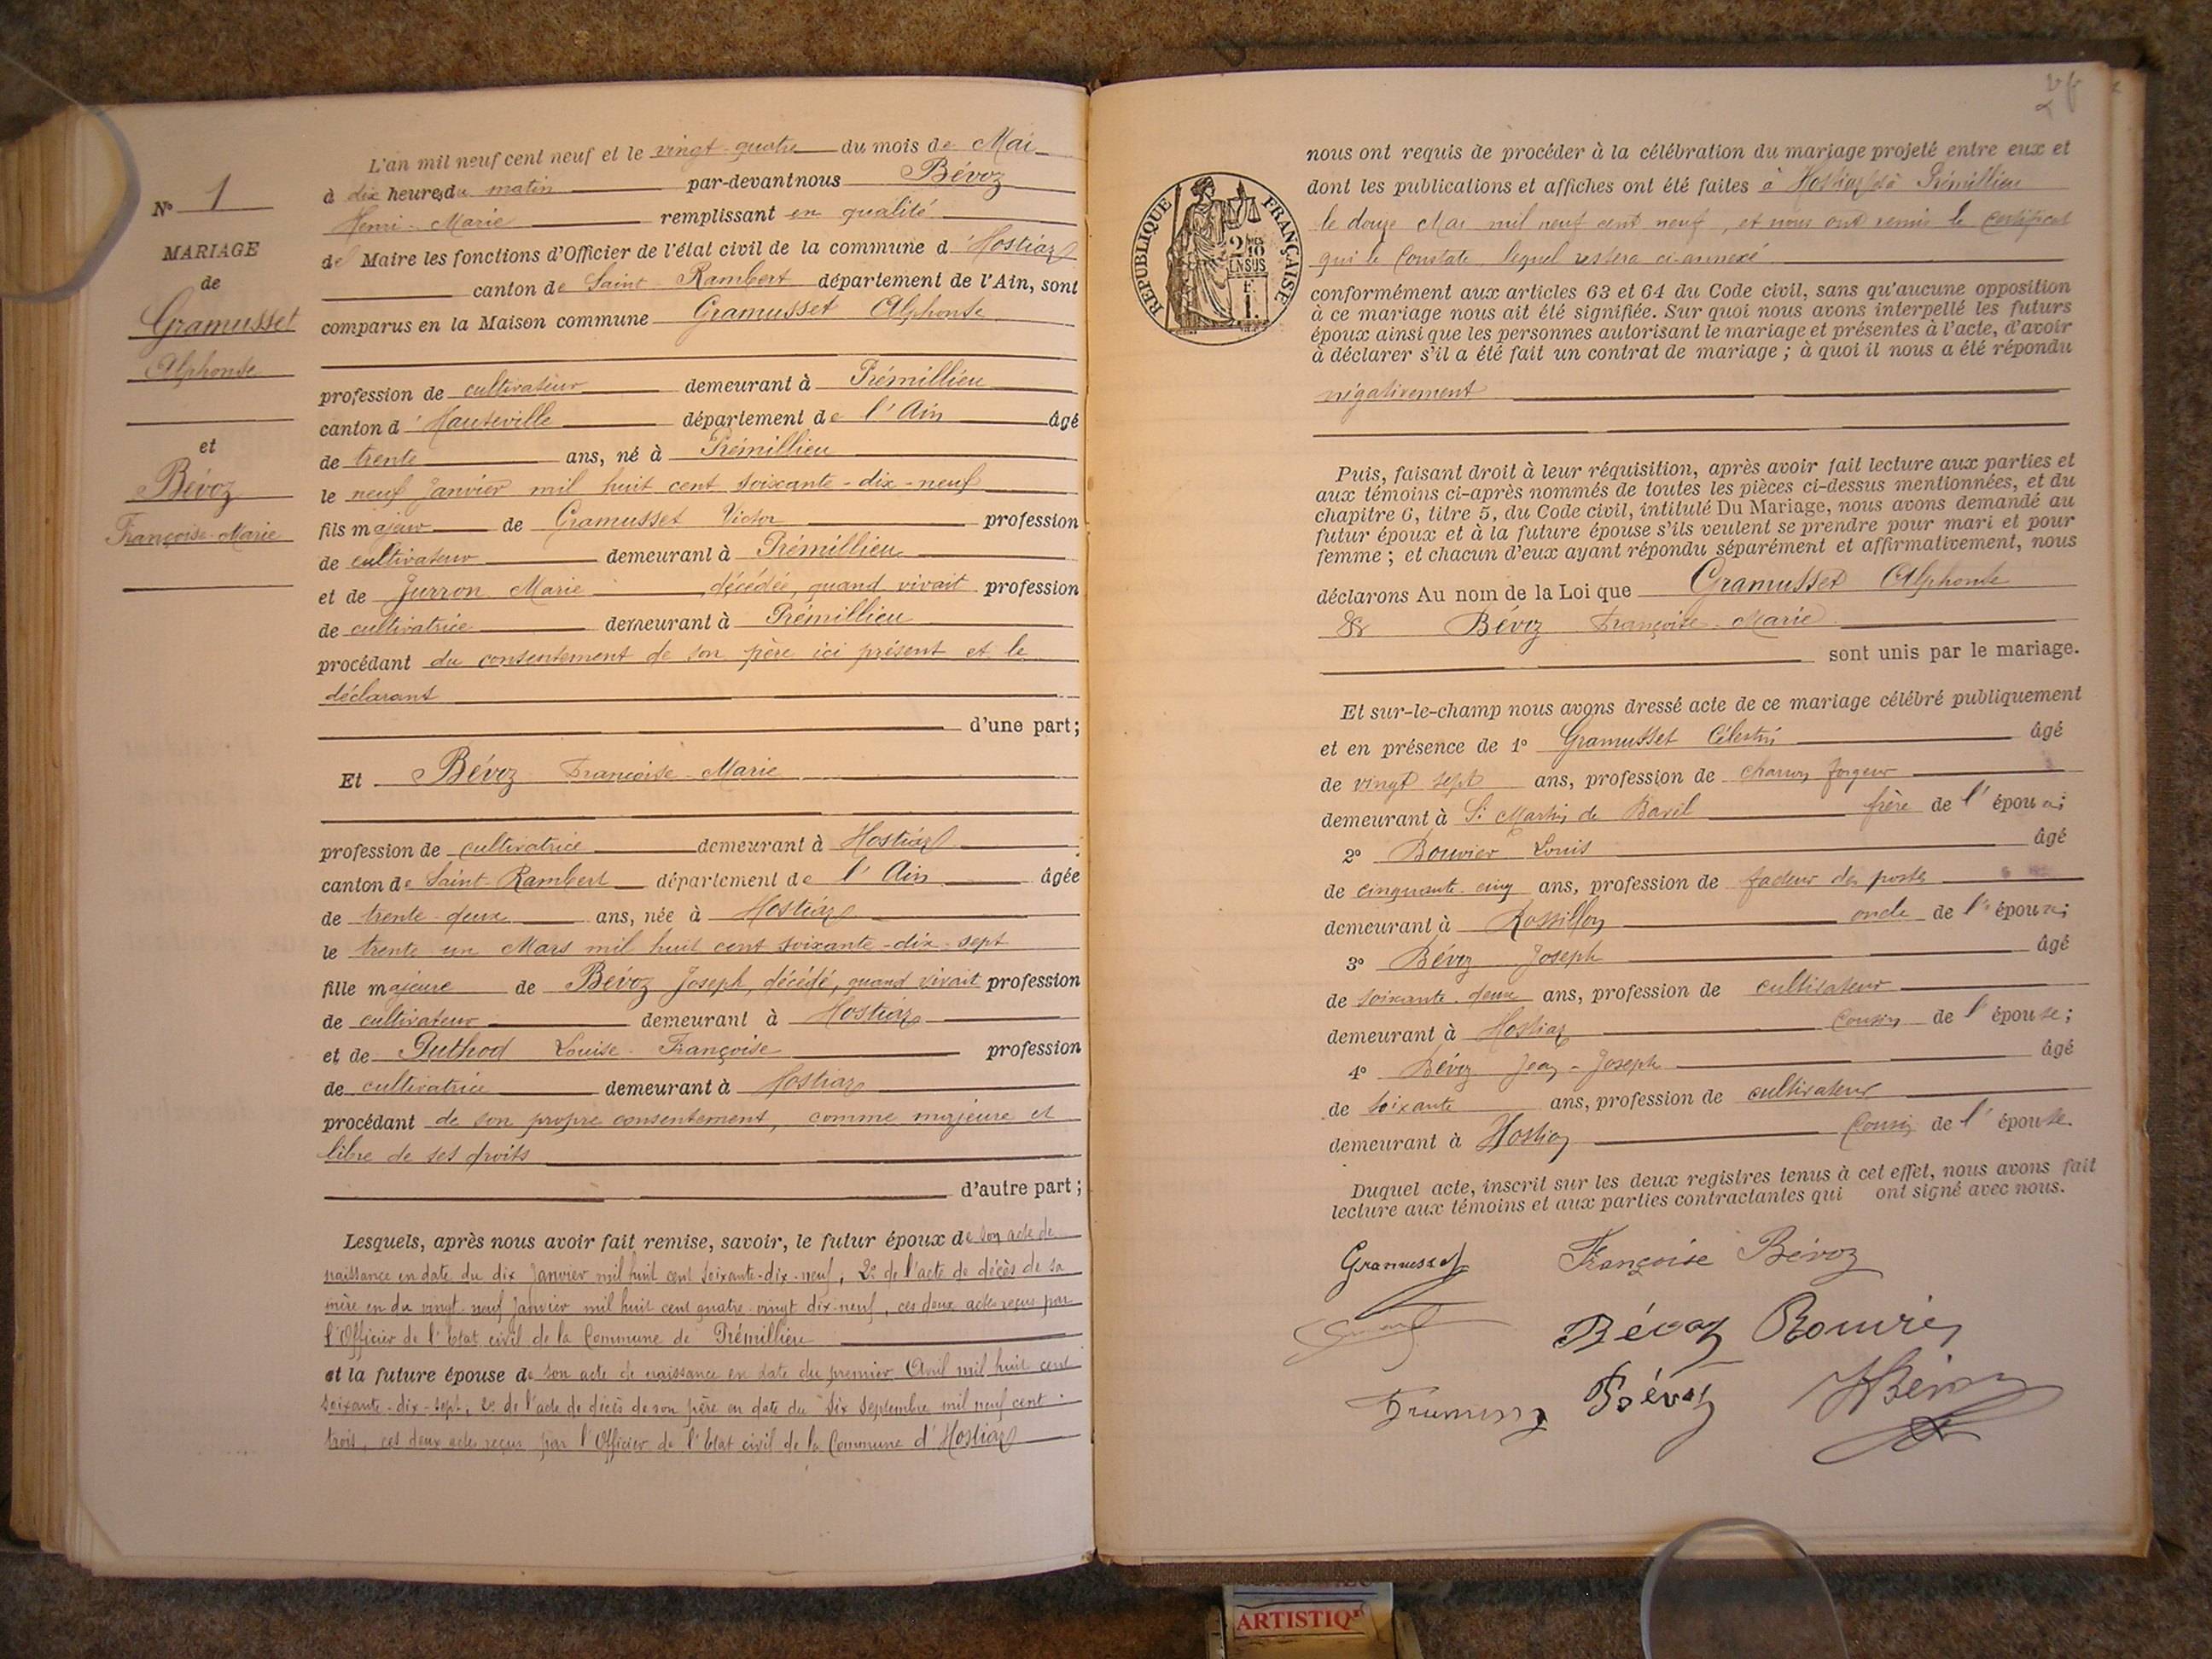 N° 1
MARIAGE
de
Gramusset
Alphonse
et
Bévoz
Françoise-Marie
L'an mil neuf cent neuf et le vingt-quatre du mois de Mai
à dix heures du matin par-devant nous Bévoz
Henri-Marie remplissant en qualité
de Maire les fonctions d'Officier de l'état civil de la commune d'Hostiaz
canton de Saint-Rambert département de l'Ain, sont
comparus en la Maison commune Gramusset Alphonse
profession de cultivateur demeurant à Prémillieu
canton d'Hauteville département de l'Ain âgé
de trente ans, né à Prémillieu
le neuf Janvier mil huit cent soixante-dix-neuf
fils majeur de Gramusset Victor profession
de cultivateur demeurant à Prémillieu
et de Jurron Marie décédée, quand vivait profession
de cultivatrice demeurant à Prémillieu
procédant du consentement de son père ici présent et le
déclarant
d'une part;
Et Bévoz Françoise-Marie
profession de cultivatrice demeurant à Hostiaz
canton de Saint-Rambert département de l'Ain âgée
de trente-deux ans, née à Hostiaz
le trente un Mars mil huit cent soixante-dix-sept
fille majeure de Bévoz Joseph, décédé, quand vivait profession
de cultivateur demeurant à Hostiaz
et de Puthod Louise-Françoise profession
de cultivatrice demeurant à Hostiaz
procédant de son propre consentement, comme majeure et
libre de ses droits
d'autre part;
Lesquels, après nous avoir fait remise, savoir, le futur époux de son acte de
naissance en date du dix Janvier mil huit cent soixante-dix-neuf; 2° de l'acte de décès de sa
mère en du vingt-neuf Janvier mil huit cent quatre-vingt dix-neuf, ces deux actes reçus par
l'Officier de l'Etat civil de la Commune de Prémillieu
et la future épouse de son acte de naissance en date du premier Avril mil huit cent
soixante-dix-sept; 2° de l'acte de décès de son père en date du six Septembre mil neuf cent
trois, ces deux actes reçus par l'Officier de l'Etat civil de la Commune d'Hostiaz
RÉPUBLIQUE FRANÇAISE
2/10
EN SUS
nous ont requis de procéder à la célébration du mariage projeté entre eux et
dont les publications et affiches ont été faites à Hostiaz et à Prémillieu
le douze Mai mil neuf cent neuf, et nous ont remis le certificat
qui le constate, lequel restera ci-annexé
conformément aux articles 63 et 64 du Code civil, sans qu'aucune opposition
à ce mariage nous ait été signifiée. Sur quoi nous avons interpellé les futurs
époux ainsi que les personnes autorisant le mariage et présentes à l'acte, d'avoir
à déclarer s'il a été fait un contrat de mariage; à quoi il nous a été répondu
négativement
Puis, faisant droit à leur réquisition, après avoir fait lecture aux parties et
aux témoins ci-après nommés de toutes les pièces ci-dessus mentionnées, et du
chapitre 6, titre 5, du Code civil, intitulé Du Mariage, nous avons demandé au
futur époux et à la future épouse s'ils veulent se prendre pour mari et pour
femme; et chacun d'eux ayant répondu séparément et affirmativement, nous
déclarons Au nom de la Loi que Gramusset Alphonse
& Bévoz Françoise-Marie
sont unis par le mariage.
Et sur-le-champ nous avons dressé acte de ce mariage célébré publiquement
et en présence de 1° Gramusset Célestin âgé
de vingt sept ans, profession de charron forgeur
demeurant à St Martin de Bavel frère de l'époux;
2° Bouvier Louis âgé
de cinquante-cinq ans, profession de facteur des postes
demeurant à Rossillon oncle de l'époux;
3° Bévoz Joseph âgé
de soixante-deux ans, profession de cultivateur
demeurant à Hostiaz Cousin de l'épouse;
4° Bévoz Jean-Joseph âgé
de soixante ans, profession de cultivateur
demeurant à Hostiaz Cousin de l'épouse.
Duquel acte, inscrit sur les deux registres tenus à cet effet, nous avons fait
lecture aux témoins et aux parties contractantes qui ont signé avec nous.
Gramusset Françoise Bévoz
Bévoz Bouvier
Bévoz HBévoz
ARTISTIQ